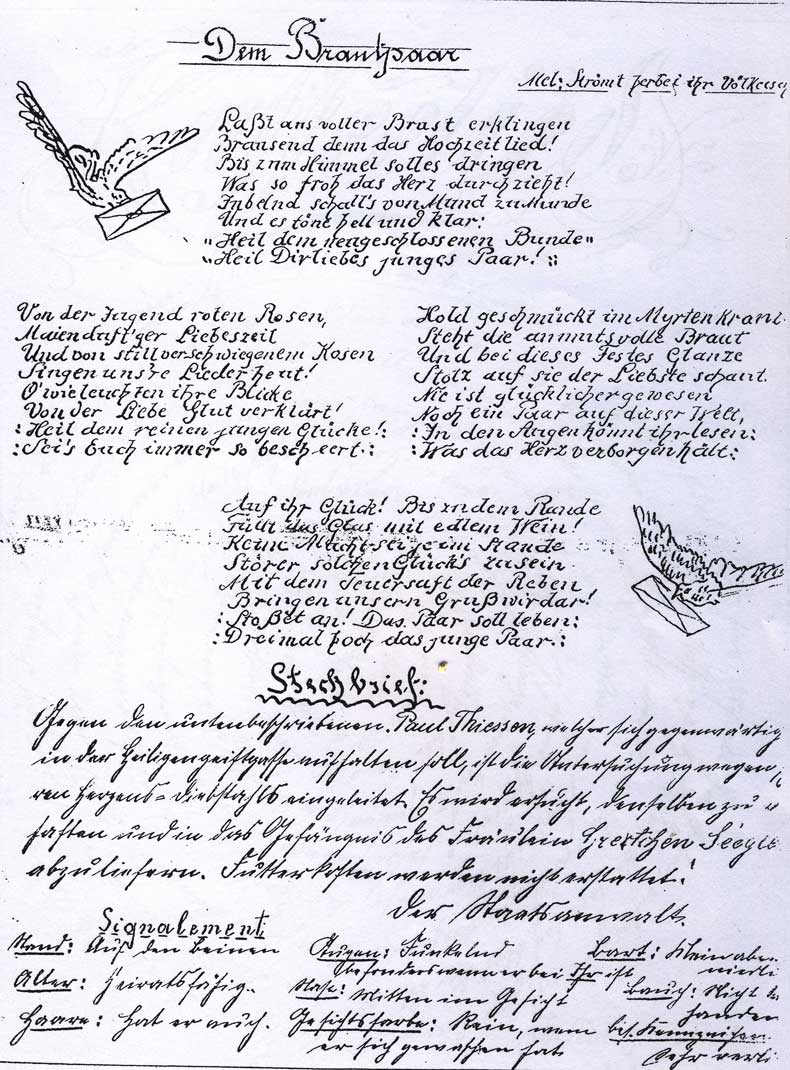 Dem Brautpaar
Mel: Strömt herbei ihr Völkersch
Laßt aus voller Brust erklingen
Brausend denn das Hochzeitlied!
Bis zum Himmel solles dringen
Was so froh das Herz durchzieht!
Jubelnd schall's von Mund zu Munde
Und es tönt hell und klar:
„Heil dem neugeschlossenen Bunde"
„Heil Dir liebes junges Paar! :
Von der Jugend roten Rosen,
Maienduft'ger Liebeszeit
Und von still verschwiegenem Kosen
Singen uns're Lieder heut!
O' wie leuchten ihre Blicke
Von der Liebe Glut verklärt!
: Heil dem reinen jungen Glücke! :
: Sei's Euch immer so bescheert. :
Hold geschmückt im Myrtenkranz
Steht die anmutsvolle Braut
Und bei dieses Festes Glanze
Stolz auf sie der Liebste schaut.
Nie ist glücklicher gewesen
Noch ein Paar auf dieser Welt,
: In den Augen könnt ihr lesen:
: Was das Herz verborgen hält :
Auf ihr Glück! Bis zu dem Rande
Füllt das Glas mit edlem Wein!
Keine Macht sei je im Stande
Störer solchen Glück's zu sein
Mit dem Feuersaft der Reben
Bringen unsern Gruß wir dar!
: Stoßet an! Das Paar soll leben:
: Dreimal hoch das junge Paar. :
Steckbrief:
Gegen den untenbeschriebenen Paul Thiessen, welcher sich gegenwärtig
in der Heiligengeistgasse aufhalten soll, ist die Untersuchung wegen
ren Herzens-Diebstahls eingeleitet. Es wird ersucht, denselben zu
haften und in das Gefängnis des Fräulein Gretchen Seegle
abzuliefern. Futterkosten werden nicht erstattet!
Der Staatsanwalt.
Signalement
Stand: Auf den Beinen
Alter: Heiratsfähig.
Haare: Hat er auch.
Augen: Funkelnd
besonders wenn er bei Ihr ist
Nase: Mitten im Gesicht
Gesichtsfarbe: Rein, wenn
er sich gewaschen hat
Bart: Klein aber
niedli
Bauch: Nicht
handen
bes. Kennzeichen
Sehr verli